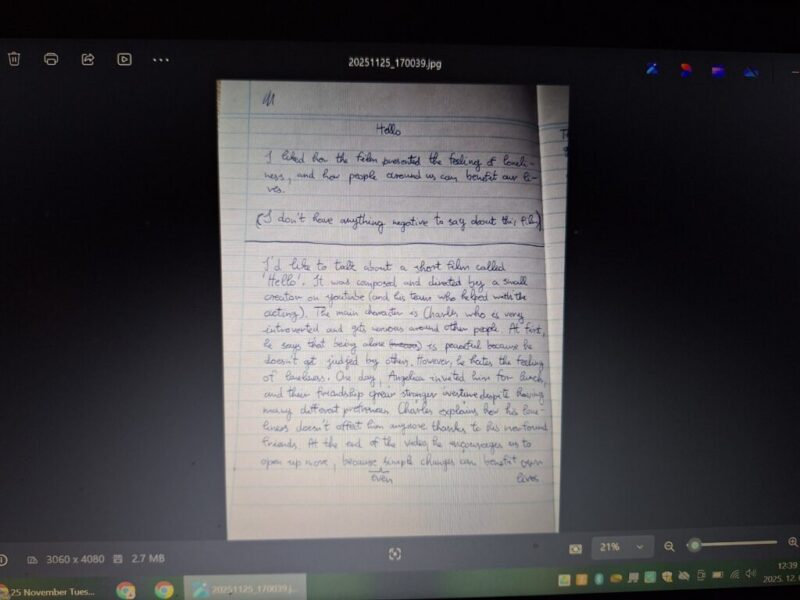 20251125_170039.jpg
Hello
I liked how the film presented the feeling of loneli-
ness, and how people around us can benefit our li-
ves.
(I don't have anything negative to say about this film)
I'd like to talk about a short film called
'Hello'. It was composed and directed by a small
creator on youtube (and his team who helped with the
acting). The main character is Charles who is very
introverted and gets nervous around other people. At first,
he says that being alone is peaceful because he
doesn't get judged by others. However, he hates the feeling
of loneliness. One day, Angelica invited him for lunch,
and their friendship grew stronger overtime despite having
many different preferences. Charles explains how his lone-
liness doesn't affect him anymore thanks to his newfound
friends. At the end of the video, he encourages us to
open up more, because simple changes can benefit our
even lives
3060 x 4080 2.7 MB
21%
25 November Tues...
20251125_170039.j...
12:39
2025. 12.